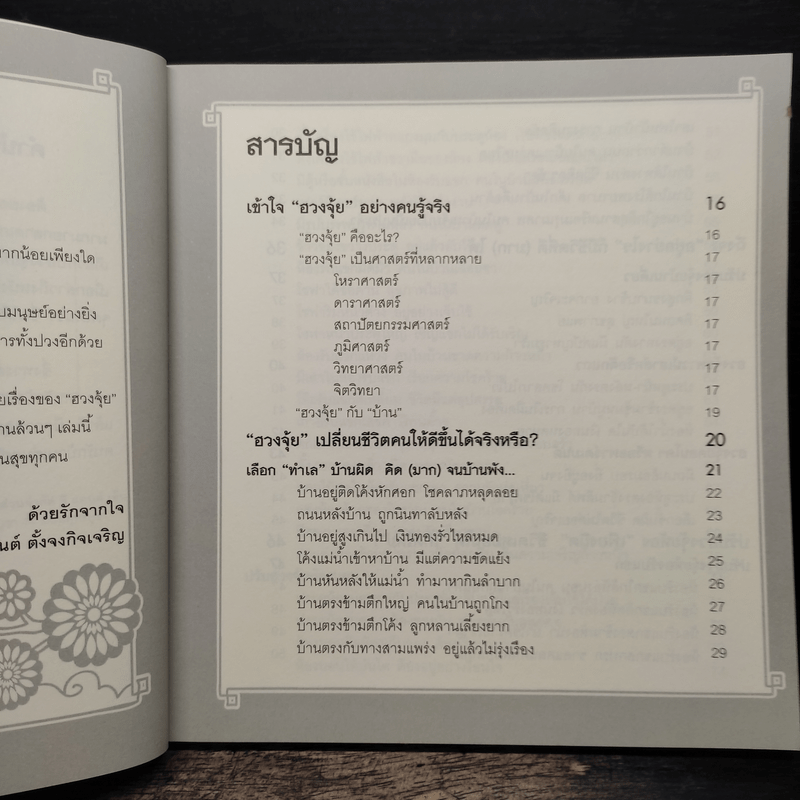 มากน้อยเพียงใด
บมนุษย์อย่างยิ่ง
การทั้งปวงอีกด้วย
ยเรื่องของ “ฮวงจุ้ย”
านล้วนๆ เล่มนี้
นสุขทุกคน
ด้วยรักจากใจ
นต์ ตั้งจงกิจเจริญ
สารบัญ
เข้าใจ “ฮวงจุ้ย” อย่างคนรู้จริง 16
“ฮวงจุ้ย” คืออะไร? 16
“ฮวงจุ้ย” เป็นศาสตร์ที่หลากหลาย 17
โหราศาสตร์ 17
ดาราศาสตร์ 17
สถาปัตยกรรมศาสตร์ 17
ภูมิศาสตร์ 17
วิทยาศาสตร์ 17
จิตวิทยา 17
“ฮวงจุ้ย” กับ “บ้าน” 19
“ฮวงจุ้ย” เปลี่ยนชีวิตคนให้ดีขึ้นได้จริงหรือ? 20
เลือก “ทำเล” บ้านผิด คิด (มาก) จนบ้านพัง... 21
บ้านอยู่ติดโค้งหักศอก โชคลาภหลุดลอย 22
ถนนหลังบ้าน ถูกนินทาลับหลัง 23
บ้านอยู่สูงเกินไป เงินทองรั่วไหลหมด 24
โค้งแม่น้ำเข้าหาบ้าน มีแต่ความขัดแย้ง 25
บ้านหันหลังให้แม่น้ำ ทำมาหากินลำบาก 26
บ้านตรงข้ามตึกใหญ่ คนในบ้านถูกโกง 27
บ้านตรงข้ามตึกโค้ง ลูกหลานเลี้ยงยาก 28
บ้านตรงกับทางสามแพร่ง อยู่แล้วไม่รุ่งเรือง 29